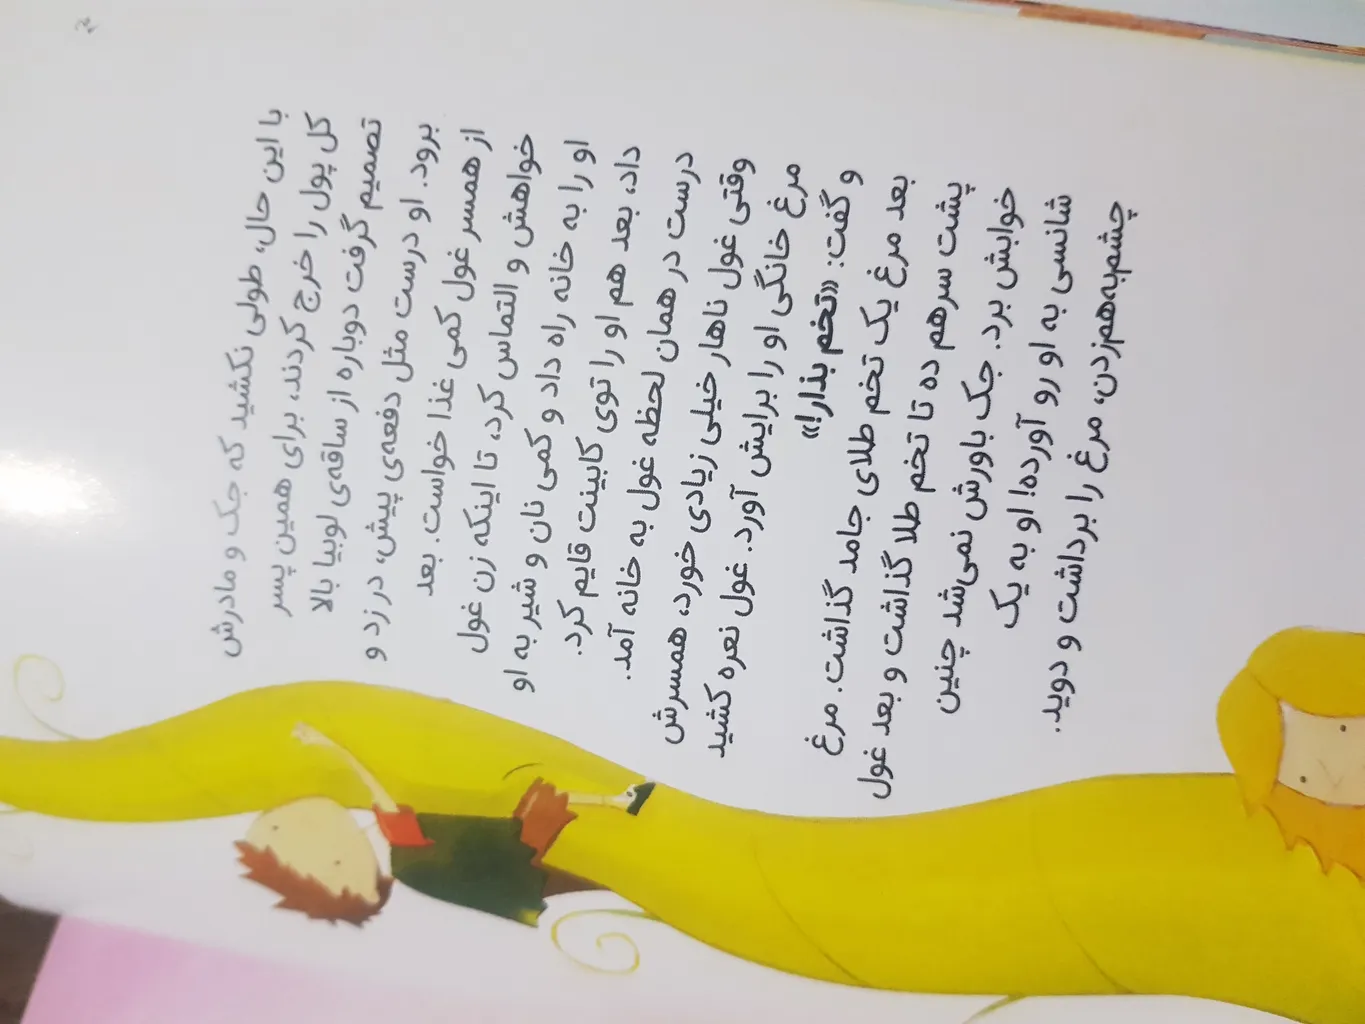 با این حال، طولی نکشید که جک و مادرش
کل پول را خرج کردند، برای همین پسر
تصمیم گرفت دوباره از ساقه‌ی لوبیا بالا
برود. او درست مثل دفعه‌ی پیش، در زد و
از همسر غول کمی غذا خواست. بعد
خواهش و التماس کرد، تا اینکه زن غول
او را به خانه راه داد و کمی نان و شیر به او
داد، بعد هم او را توی کابینت قایم کرد.
درست در همان لحظه غول به خانه آمد.
وقتی غول ناهار خیلی زیادی خورد، همسرش
مرغ خانگی او را برایش آورد. غول نعره کشید
و گفت: «تخم بذار!»
بعد مرغ یک تخم طلای جامد گذاشت. مرغ
پشت سر هم ده تا تخم طلا گذاشت و بعد غول
خوابش برد. جک باورش نمی‌شد چنین
شانسی به او رو آورده! او به یک
چشم‌به‌هم‌زدن، مرغ را برداشت و دوید.